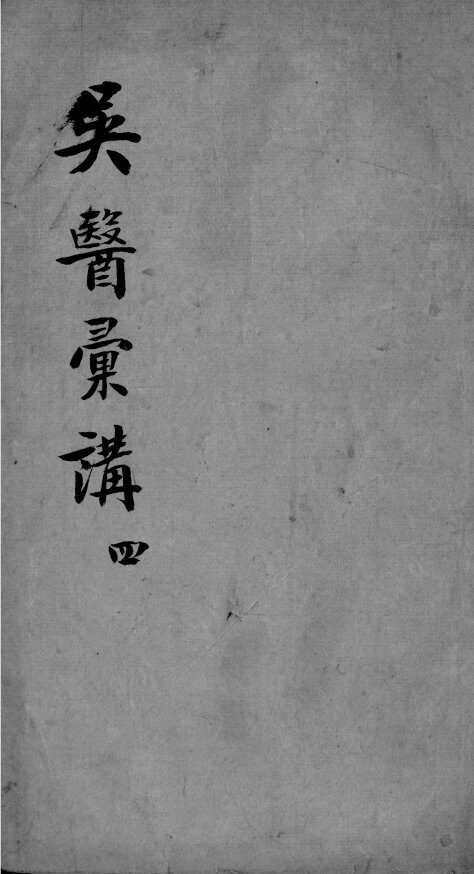 吳醫彙講 四